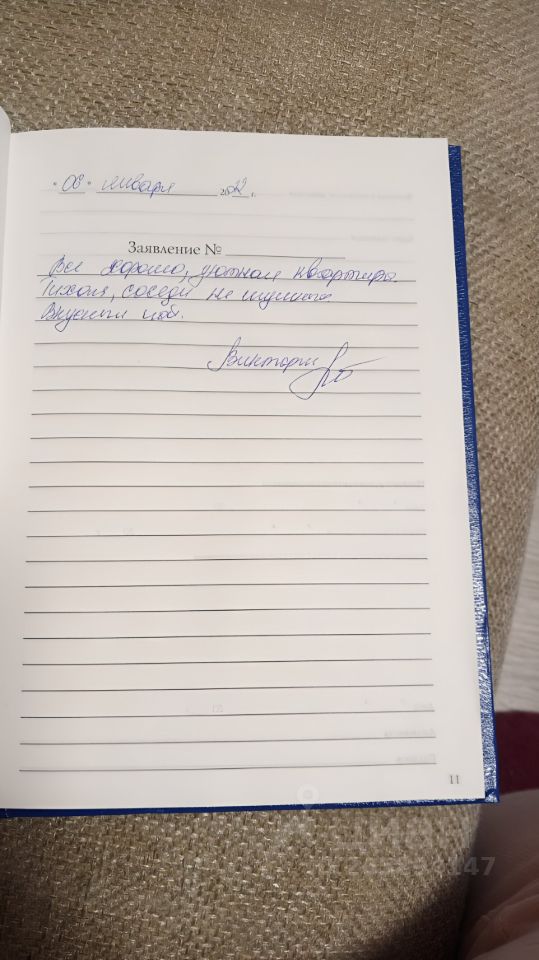 " 08 " января 2022 г.
Заявление №
Все хорошо, уютная квартира.
Тихая, соседи не шумные
Виктория
11
циан